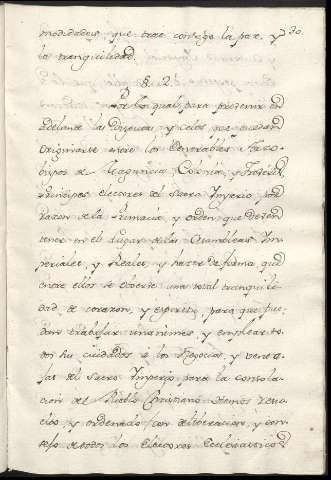 modidades que trae consigo la paz, y
la tranquilidad.
§. 2.
Por lo qual para prevenir en
adelante las Disputas, y celos que puedan
originarse entre los Venerables Arzo-
bispos de Maguncia, Colonia, y Treberis
Principes electores del Sacro Imperio por
razon de la Primacia, y orden que deven
tener en el Lugar de las Asambleas Im-
periales, y Reales, y hacer de forma que
entre ellos se observe una total tranquili-
dad, de corazon, y espiritu, para que pue-
dan trabajar unanimes, y emplear to-
dos sus cuidados a los Negocios, y venta-
jas del Sacro Imperio, para la consola-
cion del Pueblo Christiano. Hemos resu-
elto, y ordenado con deliberacion, y con-
sejo de todos los Electores Eclesiasticos